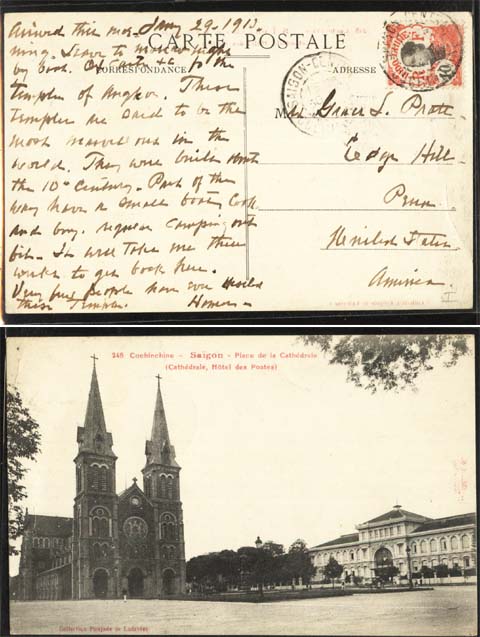 Jan 29-1913.
Arrived this mor-
ning. Leave to morrow night
by boat, ox cart &c for the
temples of Angkor. These
temples are said to be the
most marvelous in the
world. They were built about
the 10th Century. Part of the
way have a small boat, Cook
and boy. regular camping out
bit. It will take me three
weeks to get back here.
Very few people have ever visited
these Temples. Homer-
CARTE POSTALE
CORRESPONDANCE
ADRESSE
SAIGON-CEN
INDOCHINE
10
Grace L. Pratt
Edge Hill
Penn.
United States
America
248 Cochinchine - Saigon - Place de la Cathédrale
(Cathédrale, Hôtel des Postes)
Collection Poujade de Ladevèze